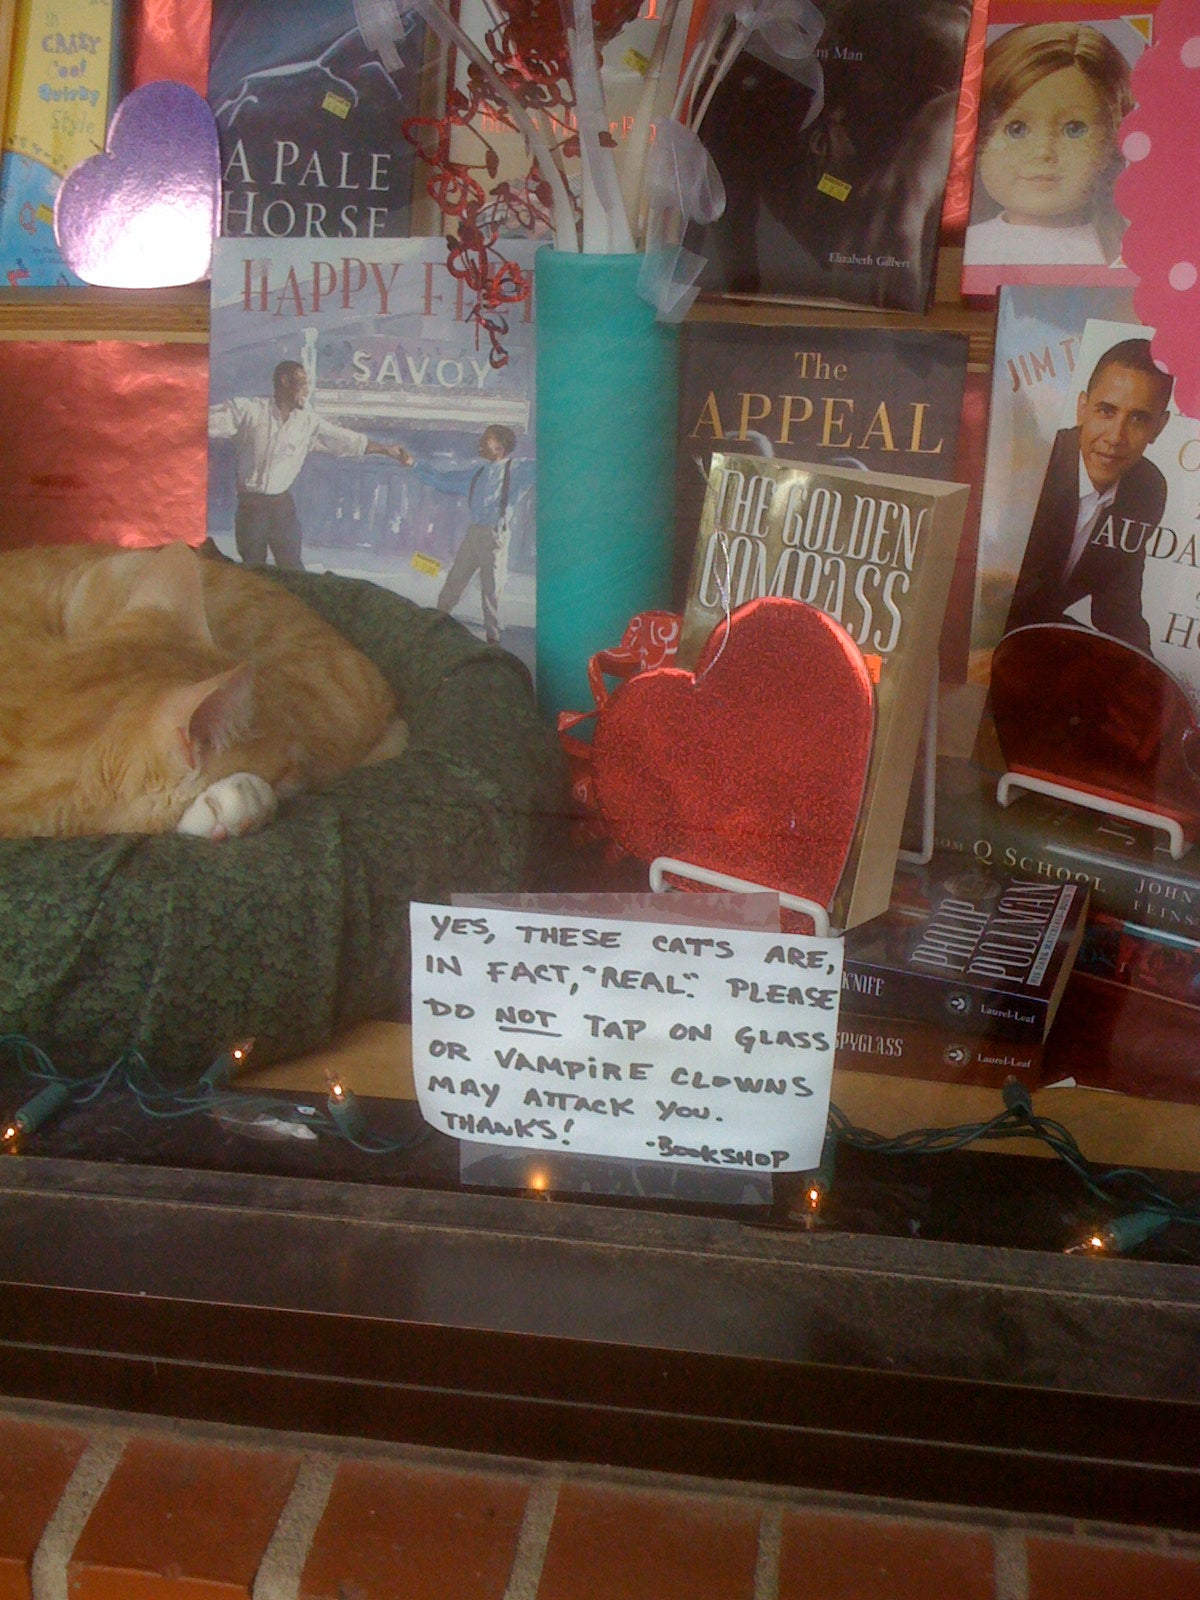 CRAZY
Cool
Quirky
Style
A PALE
HORSE
Man
Elizabeth Gilbert
HAPPY
SAVOY
The
APPEAL
JIM
THE GOLDEN
COMPASS
Q SCHOOL
JOHN
PHILIP
PULLMAN
KNIFE
Laurel-Leaf
SPYGLASS
Laurel-Leaf
YES, THESE CAT'S ARE,
IN FACT, "REAL". PLEASE
DO NOT TAP ON GLASS
OR VAMPIRE CLOWNS
MAY ATTACK YOU.
THANKS!
-BOOKSHOP